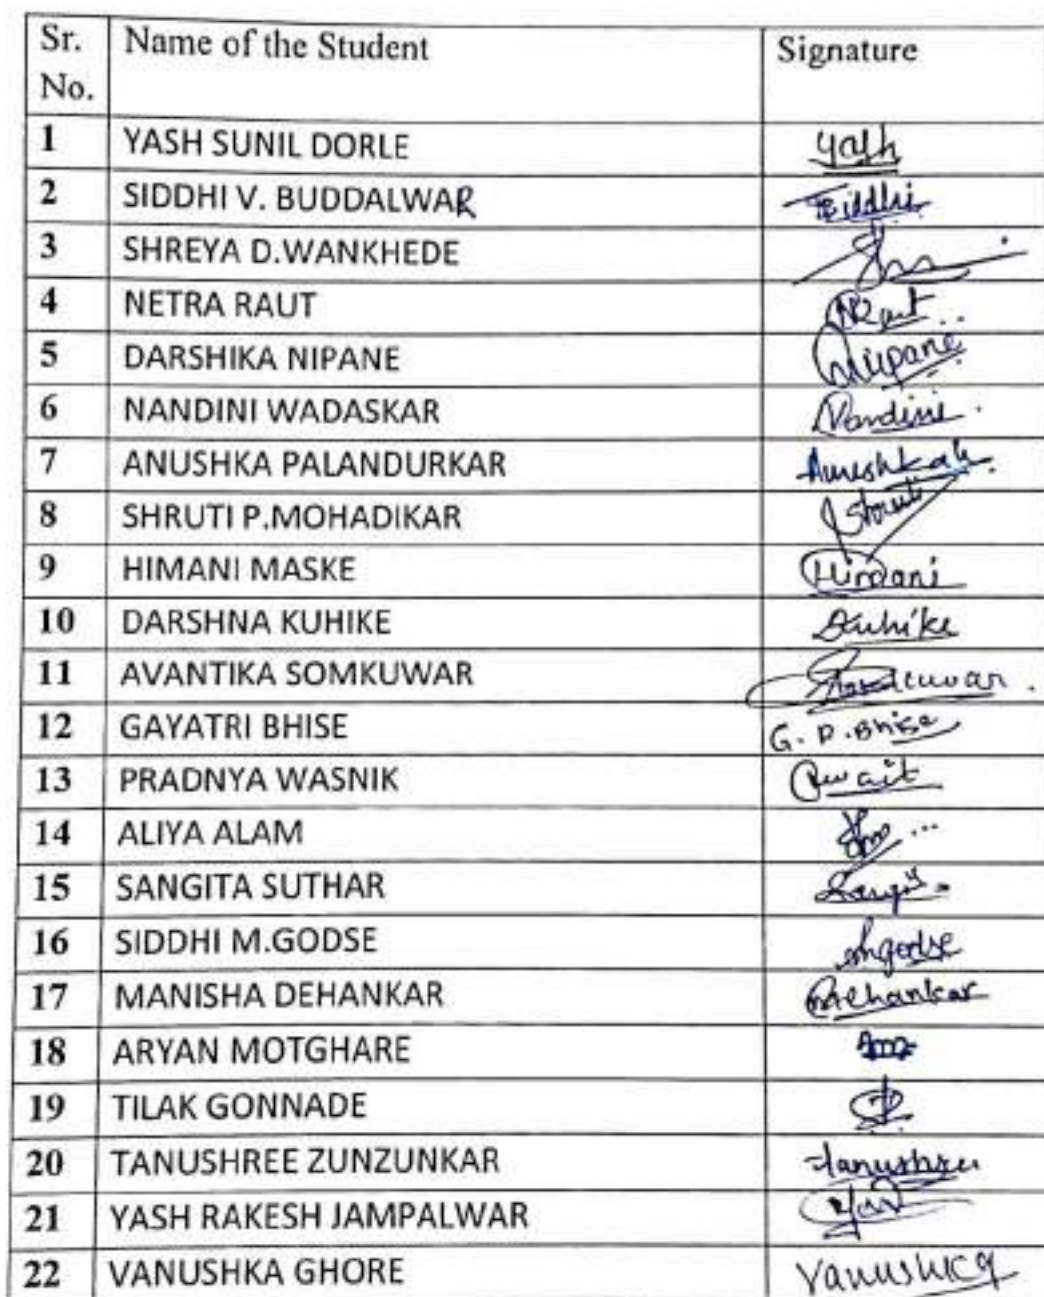 Sr. No. Name of the Student Signature
1 YASH SUNIL DORLE Yash
2 SIDDHI V. BUDDALWAR Siddhi
3 SHREYA D.WANKHEDE
4 NETRA RAUT NRaut
5 DARSHIKA NIPANE Nipane
6 NANDINI WADASKAR Nandini
7 ANUSHKA PALANDURKAR Anushka
8 SHRUTI P.MOHADIKAR Shruti
9 HIMANI MASKE Himani
10 DARSHNA KUHIKE Dkuhike
11 AVANTIKA SOMKUWAR
12 GAYATRI BHISE G. P. Bhise
13 PRADNYA WASNIK
14 ALIYA ALAM
15 SANGITA SUTHAR
16 SIDDHI M.GODSE
17 MANISHA DEHANKAR
18 ARYAN MOTGHARE
19 TILAK GONNADE
20 TANUSHREE ZUNZUNKAR Tanushree
21 YASH RAKESH JAMPALWAR
22 VANUSHKA GHORE Vanushka